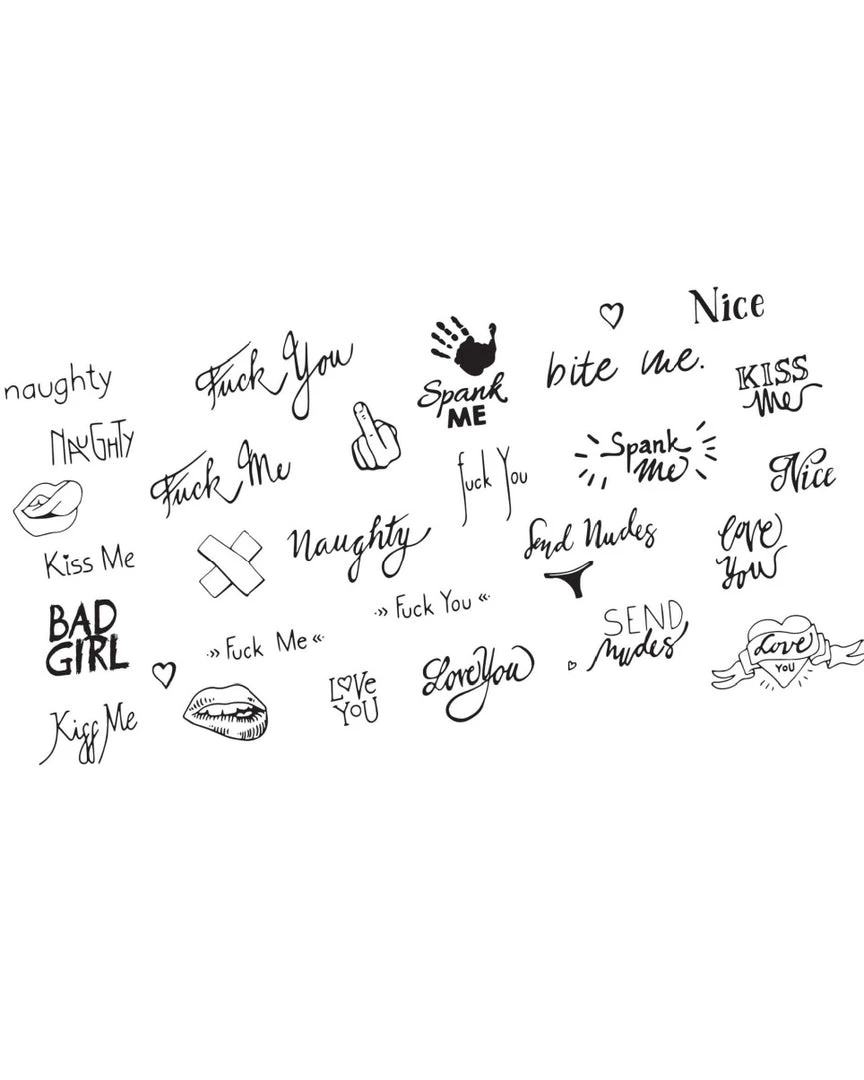 Nice
naughty
Fuck You
Spank
ME
bite me.
KISS
me
NAUGHTY
Fuck Me
fuck You
Spank
me
Nice
Kiss Me
Naughty
Send Nudes
love
you
BAD
GIRL
» Fuck Me «
» Fuck You «
SEND
nudes
Love
YOU
Kiss Me
LOVE
YOU
Love You